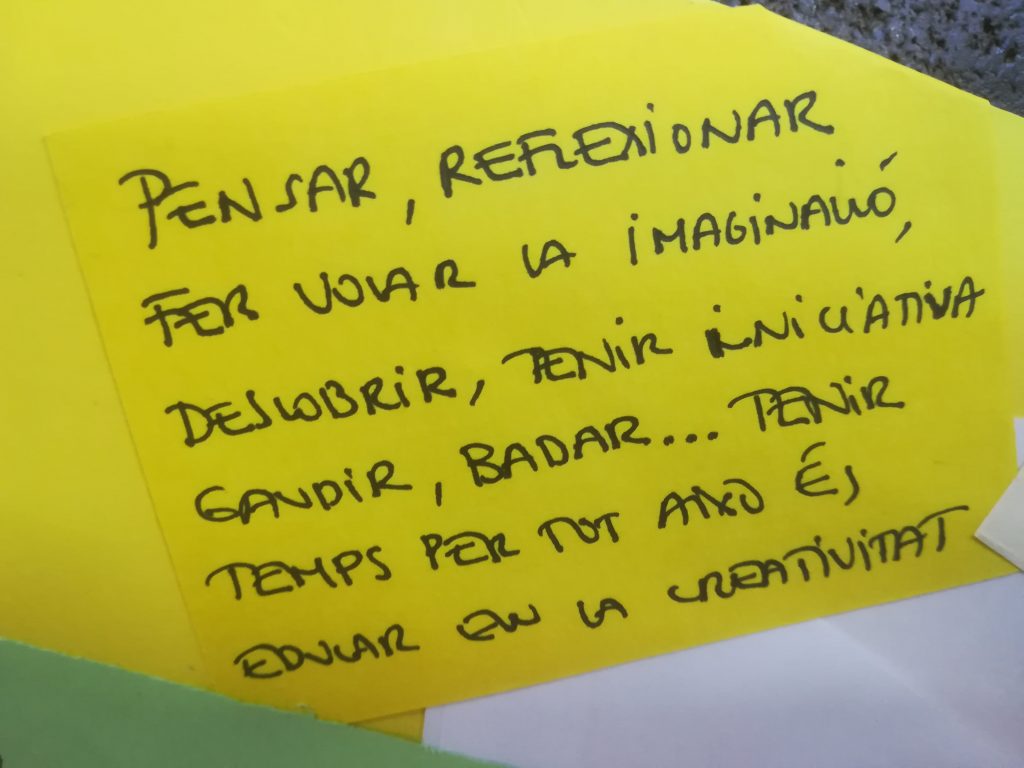 PENSAR, REFLEXIONAR
FER VOLAR LA IMAGINACIÓ,
DESCOBRIR, TENIR INICIATIVA
GAUDIR, BADAR... TENIR
TEMPS PER TOT AIXÒ ÉS
EDUCAR EN LA CREATIVITAT